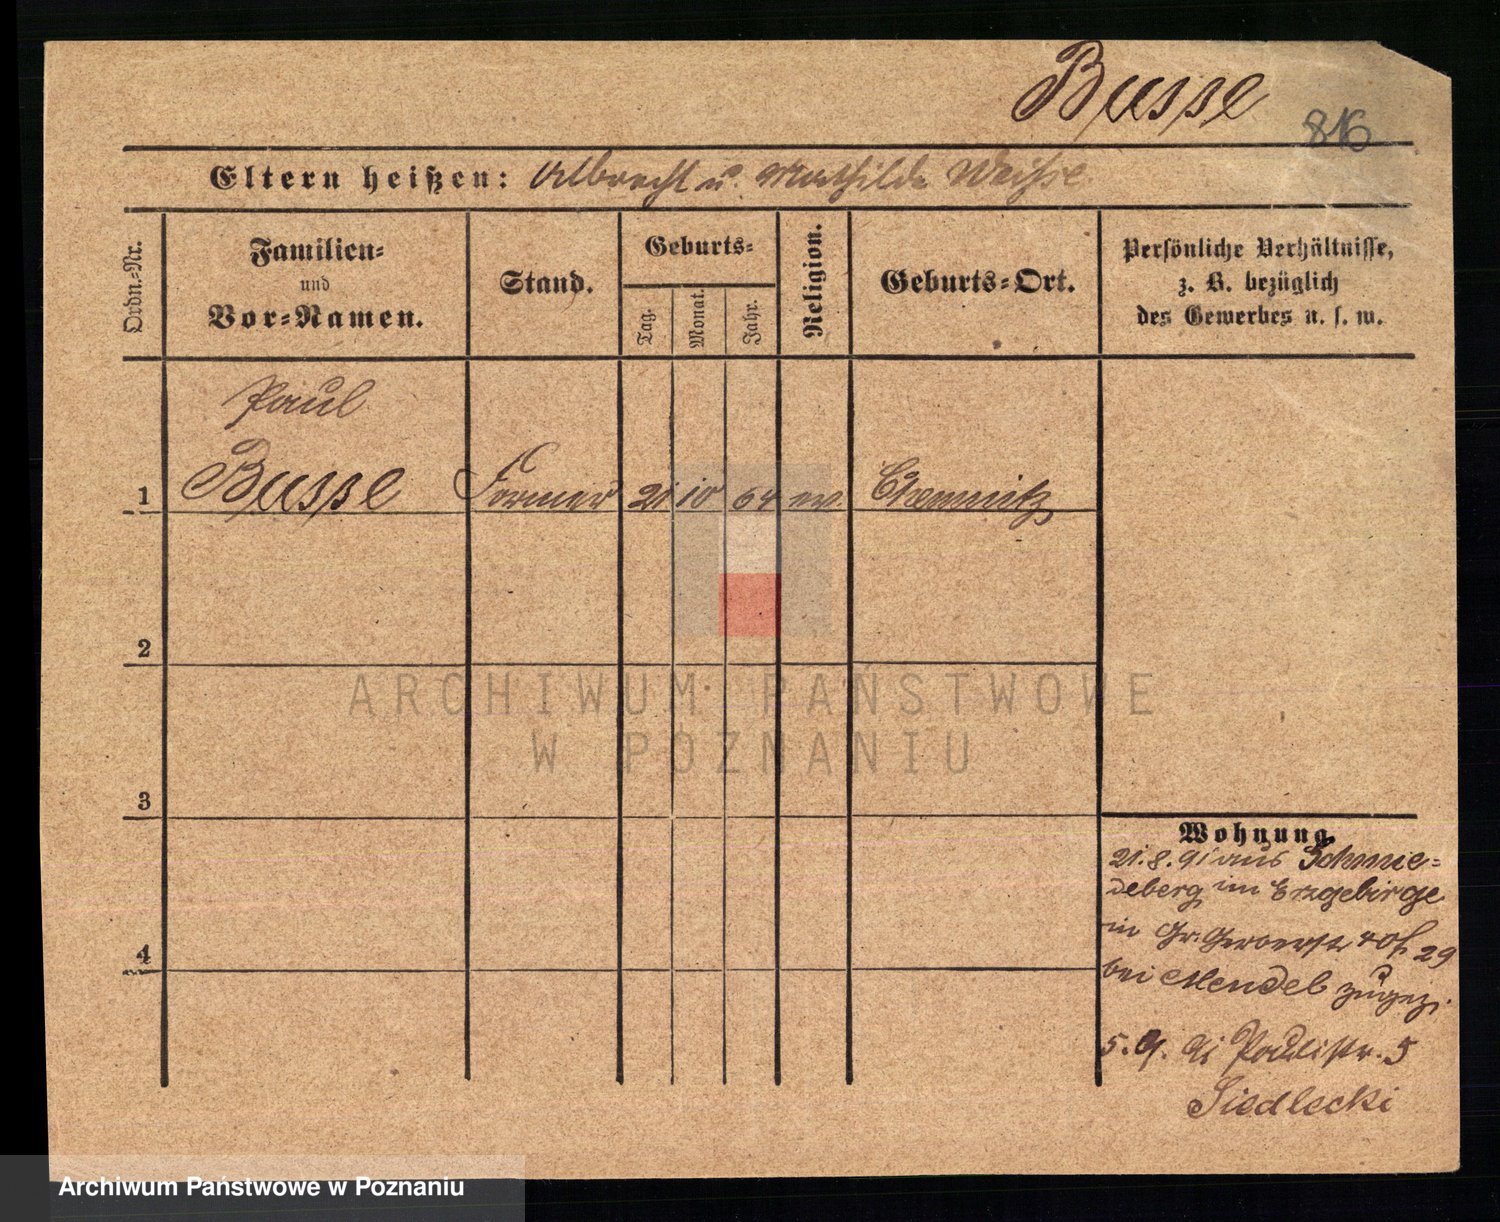 Busse
816
Eltern heißen: Albrecht u. Mathilde Weihse
Ordn.-Nr.
Familien-
und
Vor-Namen.
Stand.
Geburts-
Tag.
Monat.
Jahr.
Religion.
Geburts-Ort.
Persönliche Verhältnisse,
z. B. bezüglich
des Gewerbes u. s. w.
Paul
1 Busse Former 21 10 64 ev. Chemnitz
2
ARCHIWUM PAŃSTWOWE
W POZNANIU
3
Wohnung.
21.8.91 aus Schmie-
deberg im Erzgebirge
in Gr. Gerberstr 29
4
bei Mendel zugez.
5.9. 91 Paulistr. 5
Siedlecki
Archiwum Państwowe w Poznaniu